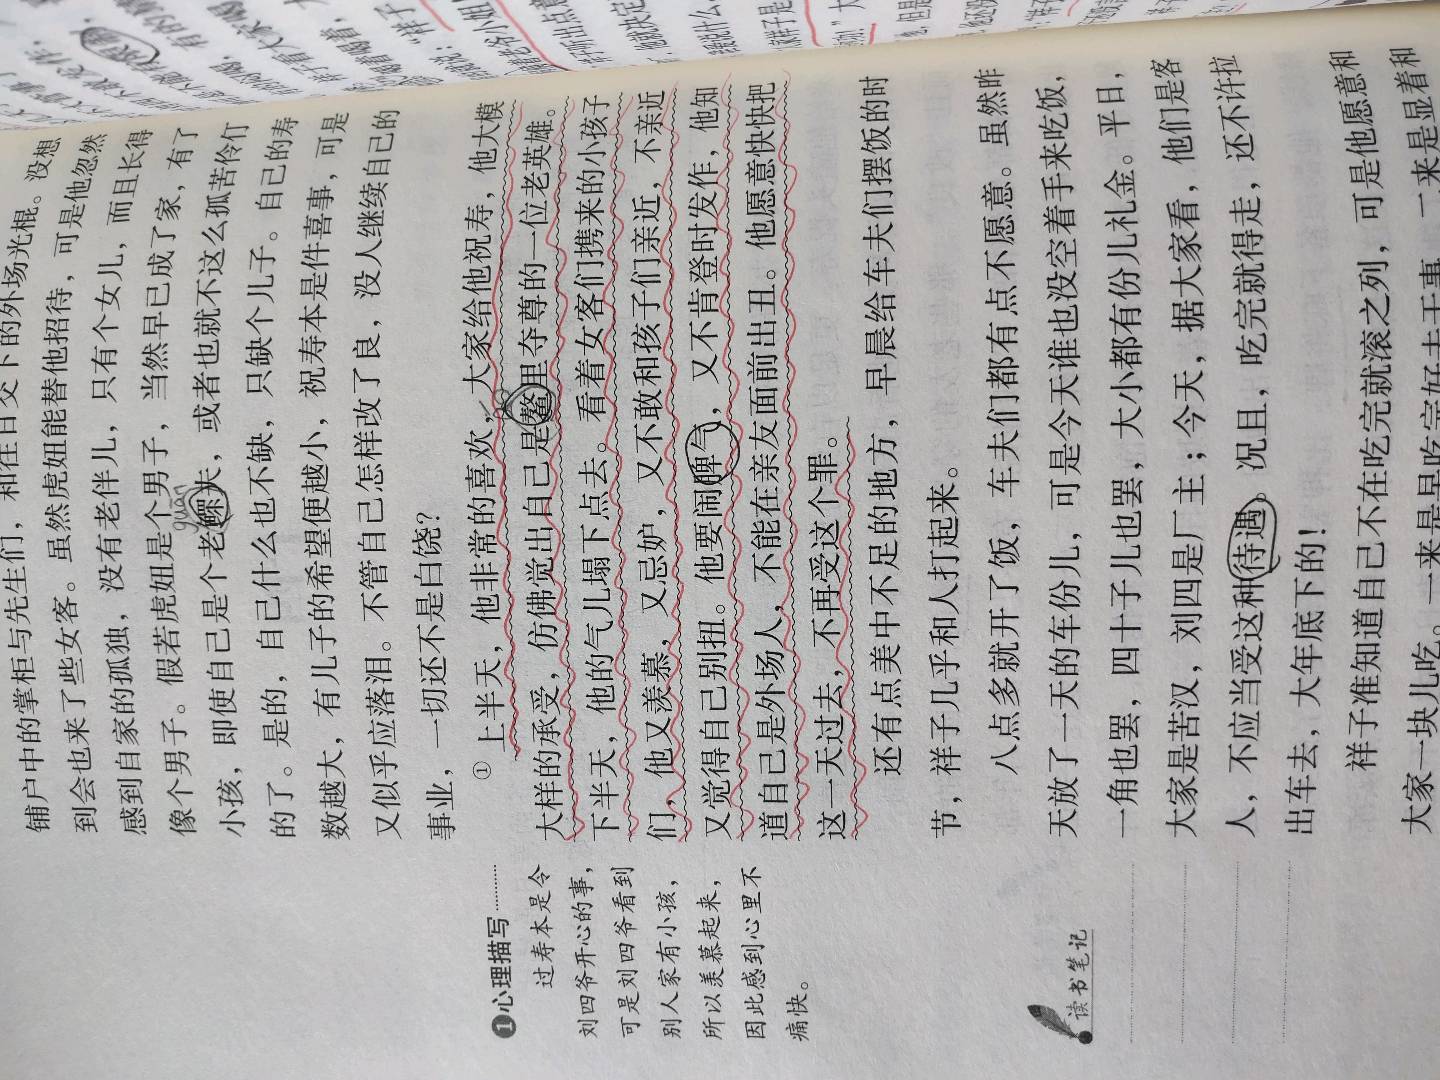 铺户中的掌柜与先生们，和往日交下的外场光棍。没想
到会也来了些女客。虽然虎妞能替他招待，可是他忽然
感到自家的孤独，没有老伴儿，只有个女儿，而且长得
像个男子。假若虎妞是个男子，当然早已成了家，有了
小孩，即使自己是个老鳏夫，或者也就不这么孤苦伶仃
的了。是的，自己什么也不缺，只缺个儿子。自己的寿
数越大，有儿子的希望便越小，祝寿本是件喜事，可是
又似乎应落泪。不管自己怎样改了良，没人继续自己的
事业，一切还不是白饶？
①上半天，他非常的喜欢，大家给他祝寿，他大模
大样的承受，仿佛觉出自己是鳌里夺尊的一位老英雄。
下半天，他的气儿塌下点去。看着女客们携来的小孩子
们，他又羡慕，又忌妒，又不敢和孩子们亲近，不亲近
又觉得自己别扭。他要闹脾气，又不肯登时发作，他知
道自己是外场人，不能在亲友面前出丑。他愿意快快把
这一天过去，不再受这个罪。
还有点美中不足的地方，早晨给车夫们摆饭的时
节，祥子几乎和人打起来。
八点多就开了饭，车夫们都有点不愿意。虽然昨
天放了一天的车份儿，可是今天谁也没空着手来吃饭，
一角也罢，四十子儿也罢，大小都有份儿礼金。平日，
大家是苦汉，刘四是厂主；今天，据大家看，他们是客
人，不应当受这种待遇。况且，吃完就得走，还不许拉
出车去，大年底下的！
祥子准知道自己不在吃完就滚之列，可是他愿意和
大家一块儿吃。一来是早吃完好去干事，二来是显着和
guan
❶心理描写
过寿本是令
刘四爷开心的事，
可是刘四爷看到
别人家有小孩，
所以羡慕起来，
因此感到心里不
痛快。
读书笔记